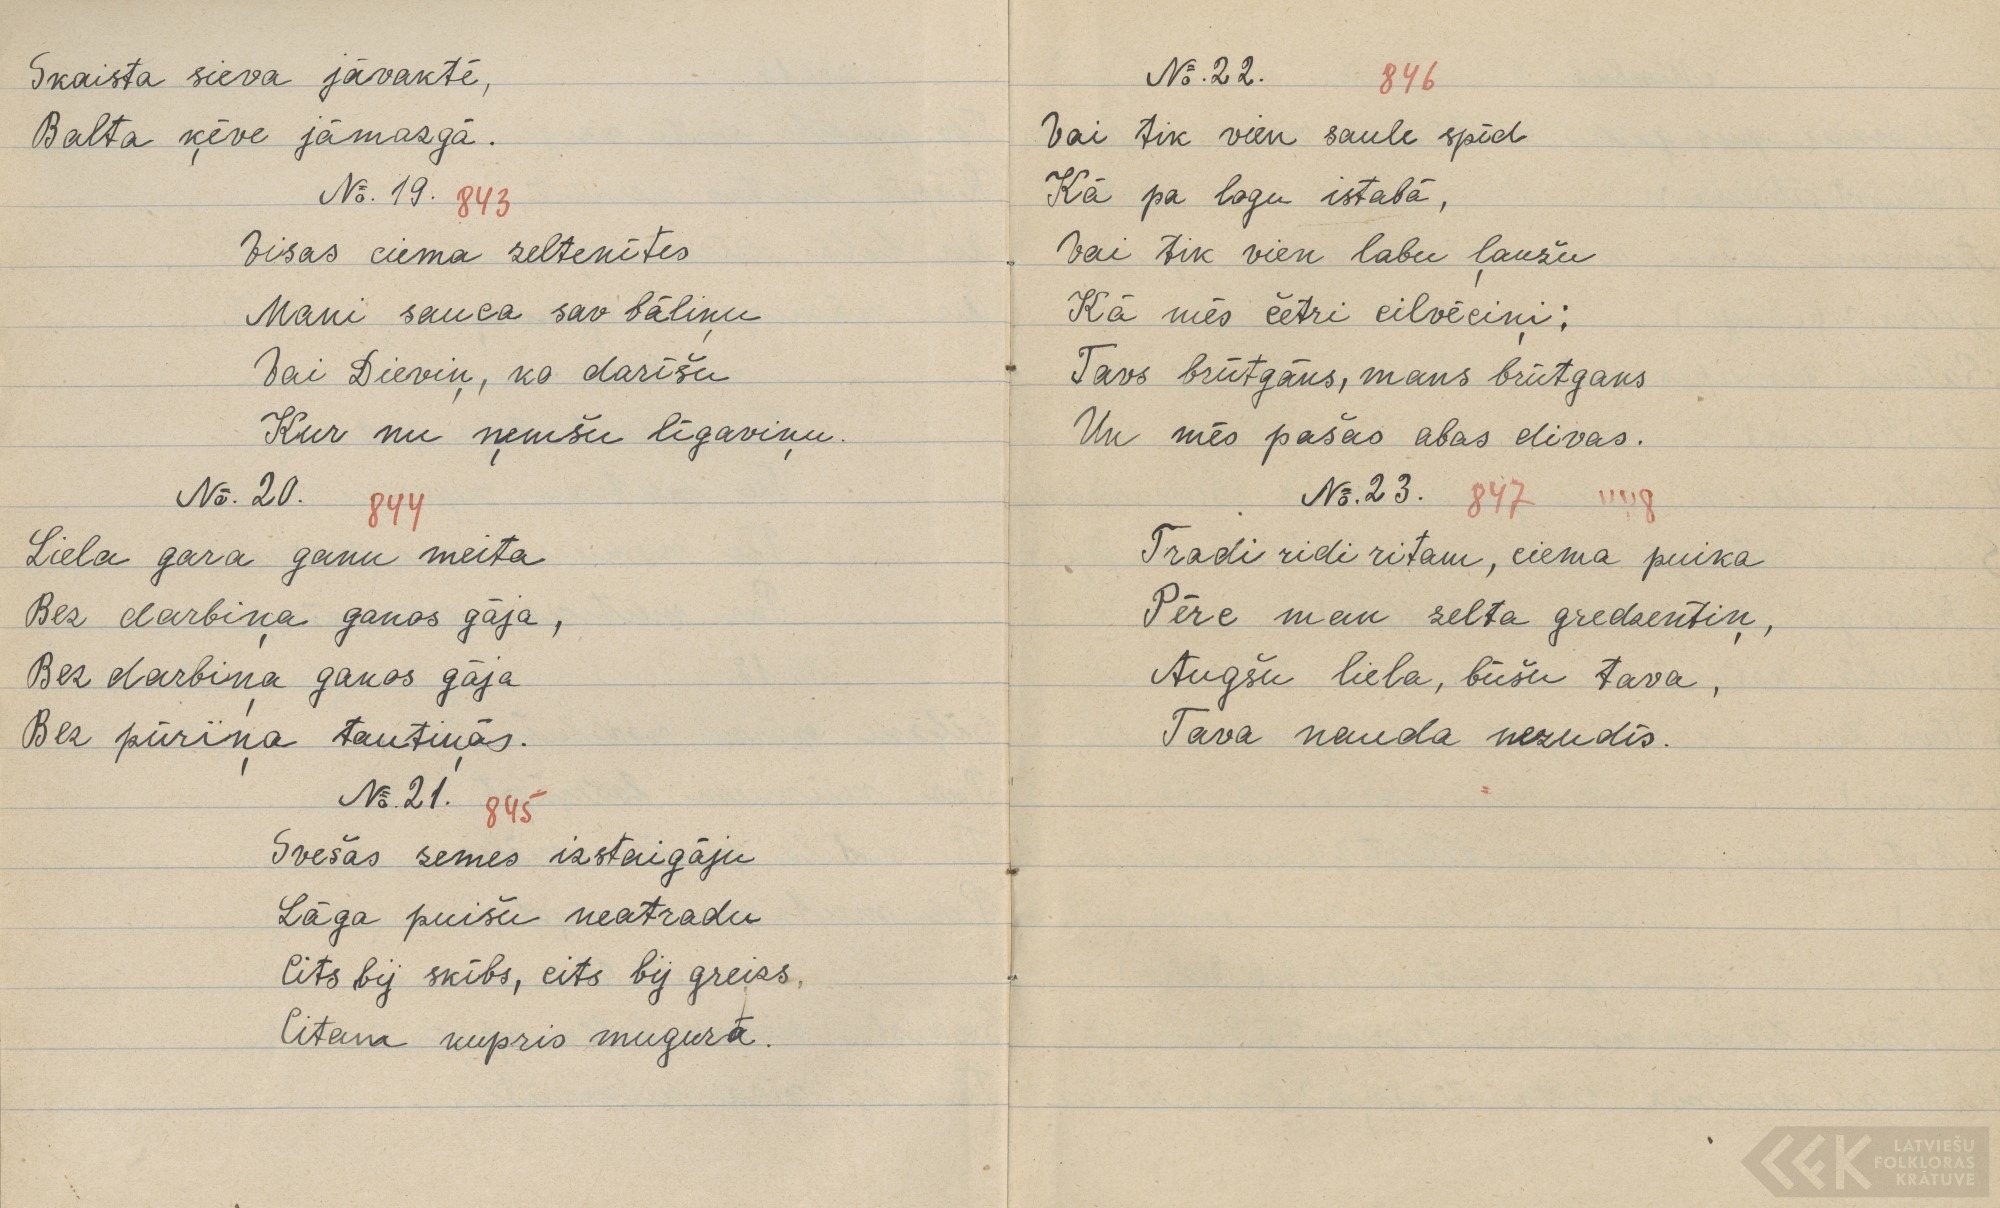 Skaista sieva jāvaktē,
Balta ķēve jāmazgā.
No. 19. 843
Visas ciema zeltenītes
Mani sauca sav bāliņu
Vai Dieviņ, ko darīšu
Kur nu ņemšu līgaviņu.
No. 20. 844
Liela gara ganu meita
Bez darbiņa ganos gāja,
Bez darbiņa ganos gāja
Bez pūriņa tautiņās.
No. 21. 845
Svešas zemes izstaigāju
Lāga puišu neatradu
Cits bij skībs, cits bij greizs,
Citam kupris mugurā.
No. 22. 846
Vai tik vien saule spīd
Kā pa logu istabā,
Vai tik vien labu ļaužu
Kā mēs četri cilvēciņi;
Tavs brūtgāns, mans brūtgans
Un mēs pašas abas divas.
No. 23. 847
Tradi ridi ritam, ciema puika
Pērc man zelta gredzentiņ,
Augšu liela, būšu tava,
Tava nauda nezudīs.
LATVIEŠU
FOLKLORAS
KRĀTUVE